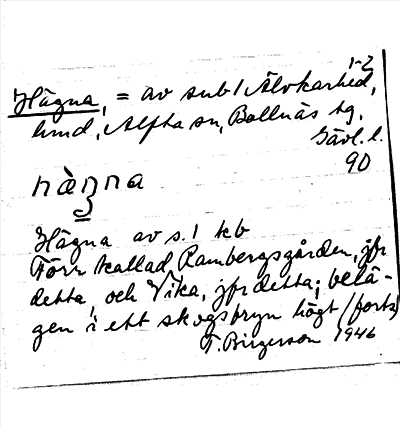 1-2
Hägna, = av sub1 Älvkarhed,
hmd, Alfta sn, Bollnäs tg,
Gävl. l.
90
hàŋna
Hägna av s. 1 kb
Förr kallad Rambergsgården, jfr
detta, och Vika, jfr detta; belä-
gen i ett skogsbryn högt (forts)
F. Birgerson 1946